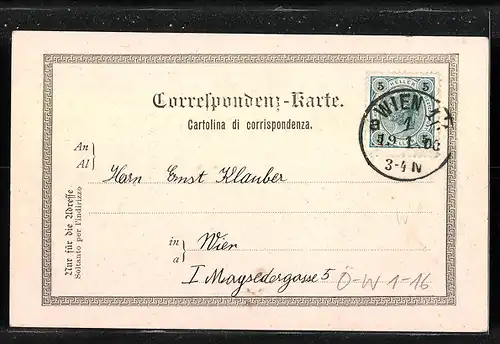 5 HELLER 5
Correspondenz-Karte.
Cartolina di corrispondenza.
WIEN
1
19 1 00
3-4 N
An
Al
Herrn Ernst Klauber
Nur für die Adresse
Soltanto per l'indirizzo
in
a
Wien
I Maysedergasse 5
Ö-W 1-16